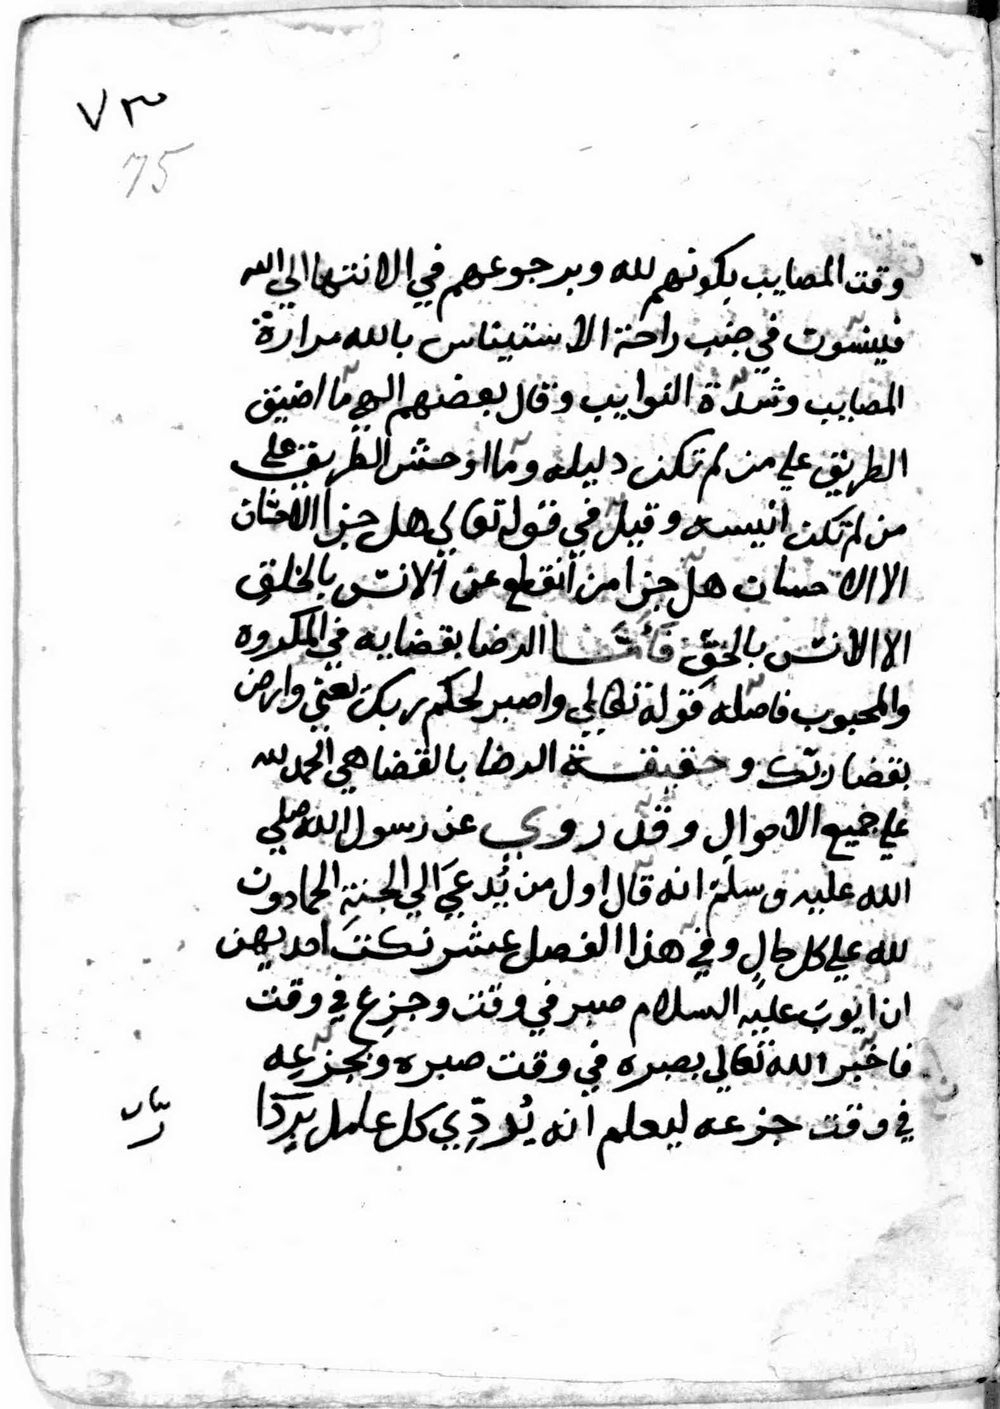 ٧٣
75
وقت المصايب بكونهم لله وبرجوعهم في الانتها الي الله
فينسون في جنب راحة الاستيناس بالله مرارة
المصايب وشدّة النوايب وقال بعضهم الهي ما اضيق
الطريق علي من لم تكن دليله وما اوحش الطريق علي
من لم تكن انيسه وقيل في قوله تعالي هل جزا الاحسان
الا الاحسان هل جزا من أنقطع عن الانس بالخلق
الا الانس بالحق فأمّا الرضا بقضايه في المكروه
والمحبوب فاصله قوله تعالي واصبر لحكم ربك يعني وارض
بقضا ربّك وحقيقة الرضا بالقضا هي الحمد لله
علي جميع الاحوال وقد روي عن رسول الله صلي
الله عليه وسلم انه قال اول من يُدعَي الي الجنة الحمادون
لله علي كل حال وفي هذا الفصل عشر نكت احديهن
ان ايوب عليه السلام صبر في وقت وجزع في وقت
فاخبر الله تعالي بصبره في وقت صبره وبجزعه
في وقت جزعه ليعلم انه يُردّي كل عامل برِدَا